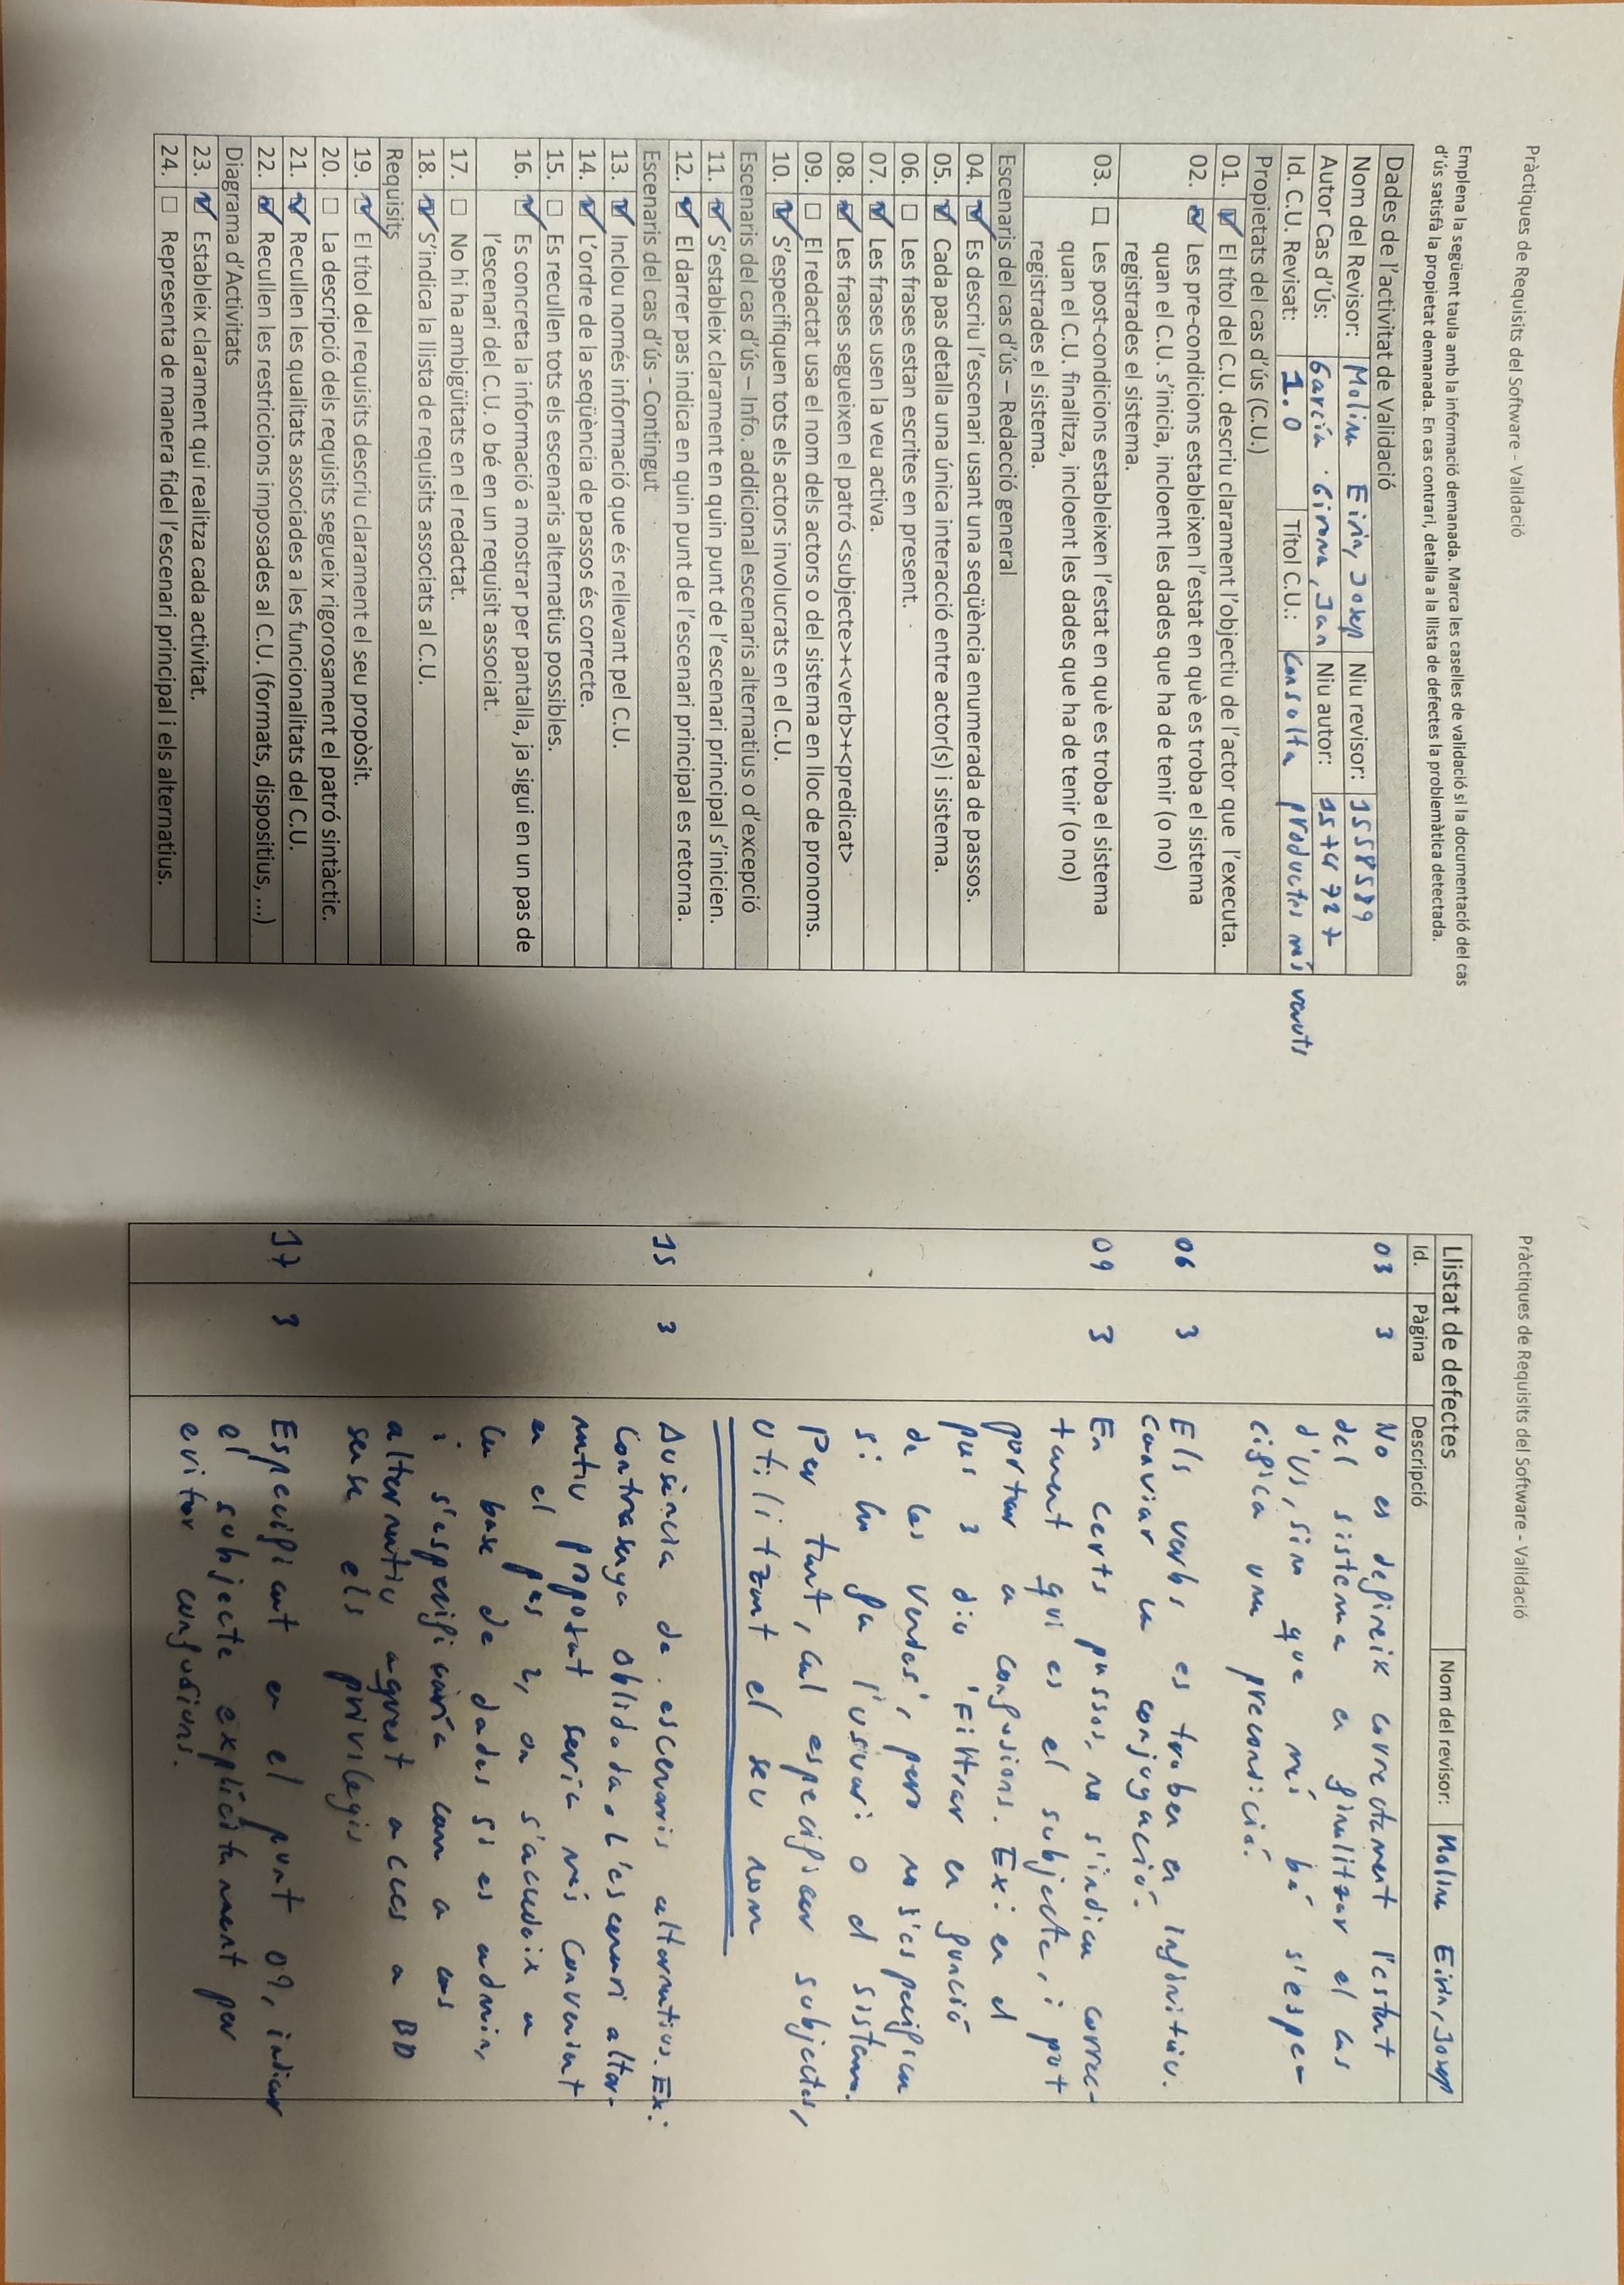 Pràctiques de Requisits del Software - Validació
Emplena la següent taula amb la informació demanada. Marca les caselles de validació si la documentació del cas
d'ús satisfà la propietat demanada. En cas contrari, detalla a la llista de defectes la problemàtica detectada.
Dades de l'activitat de Validació
Nom del Revisor: Molina Eirin, Josep Niu revisor: 1558589
Autor Cas d'Ús: García Girona, Jan Niu autor:
Id. C.U. Revisat: 1.0 Títol C.U.: Consulta productes més venuts
Propietats del cas d'ús (C.U.)
01. ☑ El títol del C.U. descriu clarament l'objectiu de l'actor que l'executa.
02. ☑ Les pre-condicions estableixen l'estat en què es troba el sistema
quan el C.U. s'inicia, incloent les dades que ha de tenir (o no)
registrades el sistema.
03. ☐ Les post-condicions estableixen l'estat en què es troba el sistema
quan el C.U. finalitza, incloent les dades que ha de tenir (o no)
registrades el sistema.
Escenaris del cas d'ús – Redacció general
04. ☑ Es descriu l'escenari usant una seqüència enumerada de passos.
05. ☑ Cada pas detalla una única interacció entre actor(s) i sistema.
06. ☐ Les frases estan escrites en present.
07. ☑ Les frases usen la veu activa.
08. ☑ Les frases segueixen el patró <subjecte>+<verb>+<predicat>
09. ☐ El redactat usa el nom dels actors o del sistema en lloc de pronoms.
10. ☑ S'especifiquen tots els actors involucrats en el C.U.
Escenaris del cas d'ús – Info. addicional escenaris alternatius o d'excepció
11. ☑ S'estableix clarament en quin punt de l'escenari principal s'inicien.
12. ☑ El darrer pas indica en quin punt de l'escenari principal es retorna.
Escenaris del cas d'ús - Contingut
13. ☑ Inclou només informació que és rellevant pel C.U.
14. ☑ L'ordre de la seqüència de passos és correcte.
15. ☐ Es recullen tots els escenaris alternatius possibles.
16. ☑ Es concreta la informació a mostrar per pantalla, ja sigui en un pas de
l'escenari del C.U. o bé en un requisit associat.
17. ☐ No hi ha ambigüitats en el redactat.
18. ☑ S'indica la llista de requisits associats al C.U.
Requisits
19. ☑ El títol del requisits descriu clarament el seu propòsit.
20. ☐ La descripció dels requisits segueix rigorosament el patró sintàctic.
21. ☑ Recullen les qualitats associades a les funcionalitats del C.U.
22. ☑ Recullen les restriccions imposades al C.U. (formats, dispositius, ...)
Diagrama d'Activitats
23. ☑ Estableix clarament qui realitza cada activitat.
24. ☐ Representa de manera fidel l'escenari principal i els alternatius.
Pràctiques de Requisits del Software - Validació
Llistat de defectes Nom del revisor: Molina Eirin, Josep
Id. Pàgina Descripció
03 3 No es defineix correctament l'estat
del sistema a finalitzar el cas
d'ús, sinó que més bé s'espe-
cifica una precondició.
06 3 Els verbs es troben en infinitiu.
Canviar la conjugació.
09 3 En certs passos, no s'indica correc-
tament qui es el subjecte, i pot
portar a confusions. Ex: en el
pas 3 diu 'Filtrar en funció
de les vendes', però no s'especifica
si ho fa l'usuari o el sistema.
Per tant, cal especificar subjectes,
utilitzant el seu nom
15 3 Ausència de escenaris alternatius. Ex:
Contrasenya oblidada. L'escenari alter-
natiu proposat seria més convenient
en el pas 2, on s'accedeix a
la base de dades si es admin,
i s'especificaria com a cas
alternatiu aquest acces a BD
sense els privilegis
17 3 Especificat en el punt 09, indicar
el subjecte explícitament per
evitar confusions.